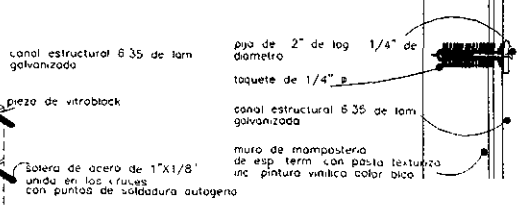 canal estructural 6 35 de lam
galvanizada
pieza de vitroblock
solera de acero de 1"X1/8'
unida en los cruses
con puntos de soldadura autogena
pija de 2" de log 1/4" de
diametro
taquete de 1/4" p
canal estructural 6 35 de lam
galvanizada
muro de mamposteria
de esp term con pasta texturiza
inc pintura vinilica color bico